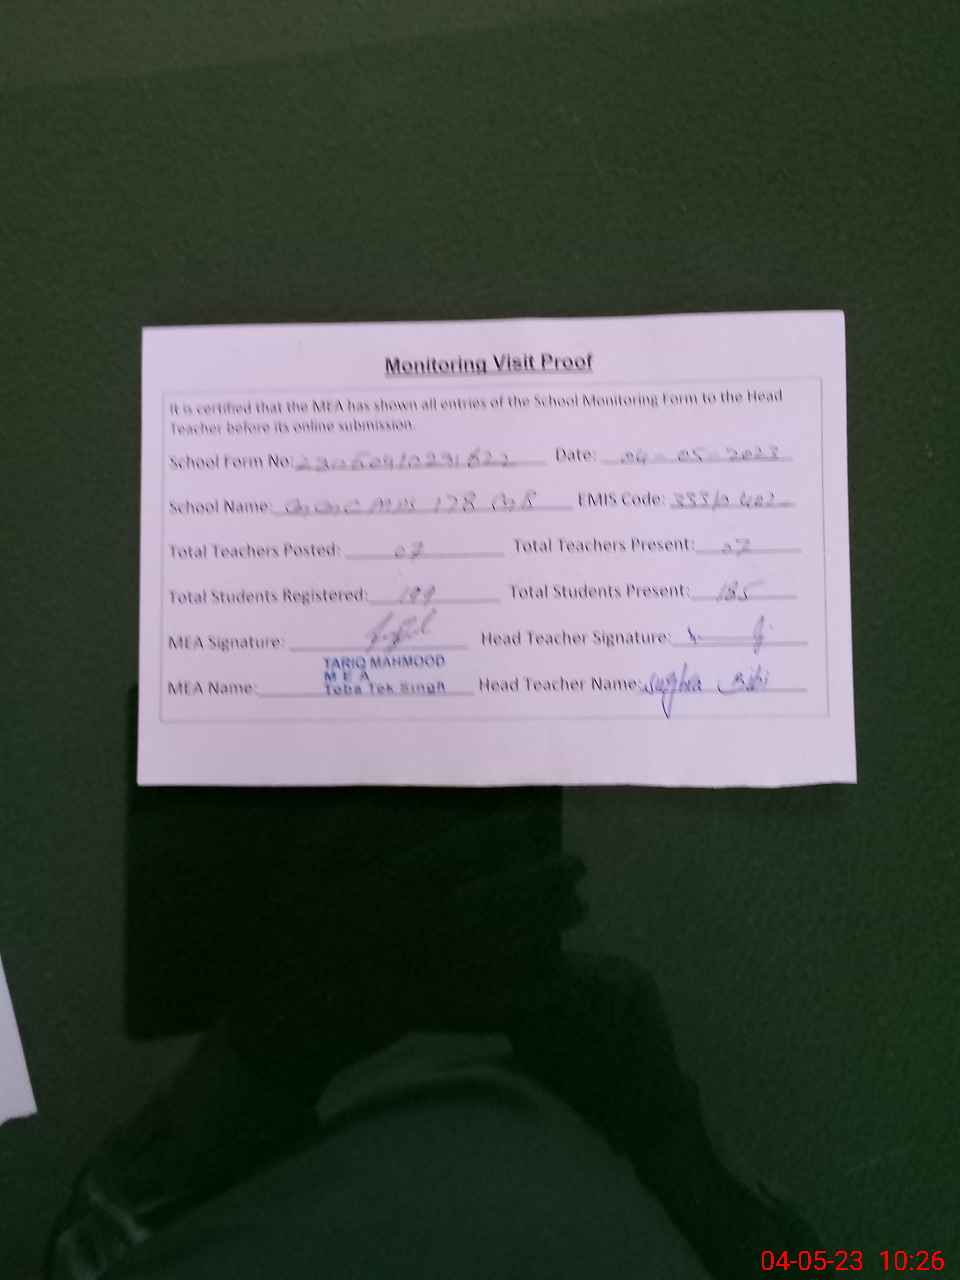 Monitoring Visit Proof
It is certified that the MEA has shown all entries of the School Monitoring Form to the Head
Teacher before its online submission.
School Form No: Date: 04-05-2023
School Name: 178 EMIS Code:
Total Teachers Posted: 07 Total Teachers Present: 07
Total Students Registered: 199 Total Students Present: 185
MEA Signature: Head Teacher Signature:
TARIQ MAHMOOD
M E A
MEA Name: Toba Tek Singh Head Teacher Name: Sughra Bibi
04-05-23 10:26